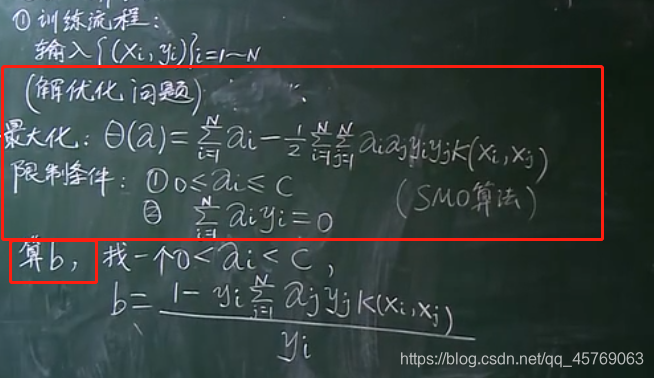 ① 训练流程:
输入{(xi, yi)}i=1~N
(解优化问题)
最大化: θ(a) = Σ_{i=1}^{N} ai - 1/2 Σ_{i=1}^{N} Σ_{j=1}^{N} ai aj yi yj K(xi, xj)
限制条件: ① 0 ≤ ai ≤ C
(SMO算法)
② Σ_{i=1}^{N} ai yi = 0
算b, 找一个 0 < ai < C,
b = (1 - yi Σ_{i=1}^{N} aj yj K(xi, xj)) / yi
https://blog.csdn.net/qq_45769063